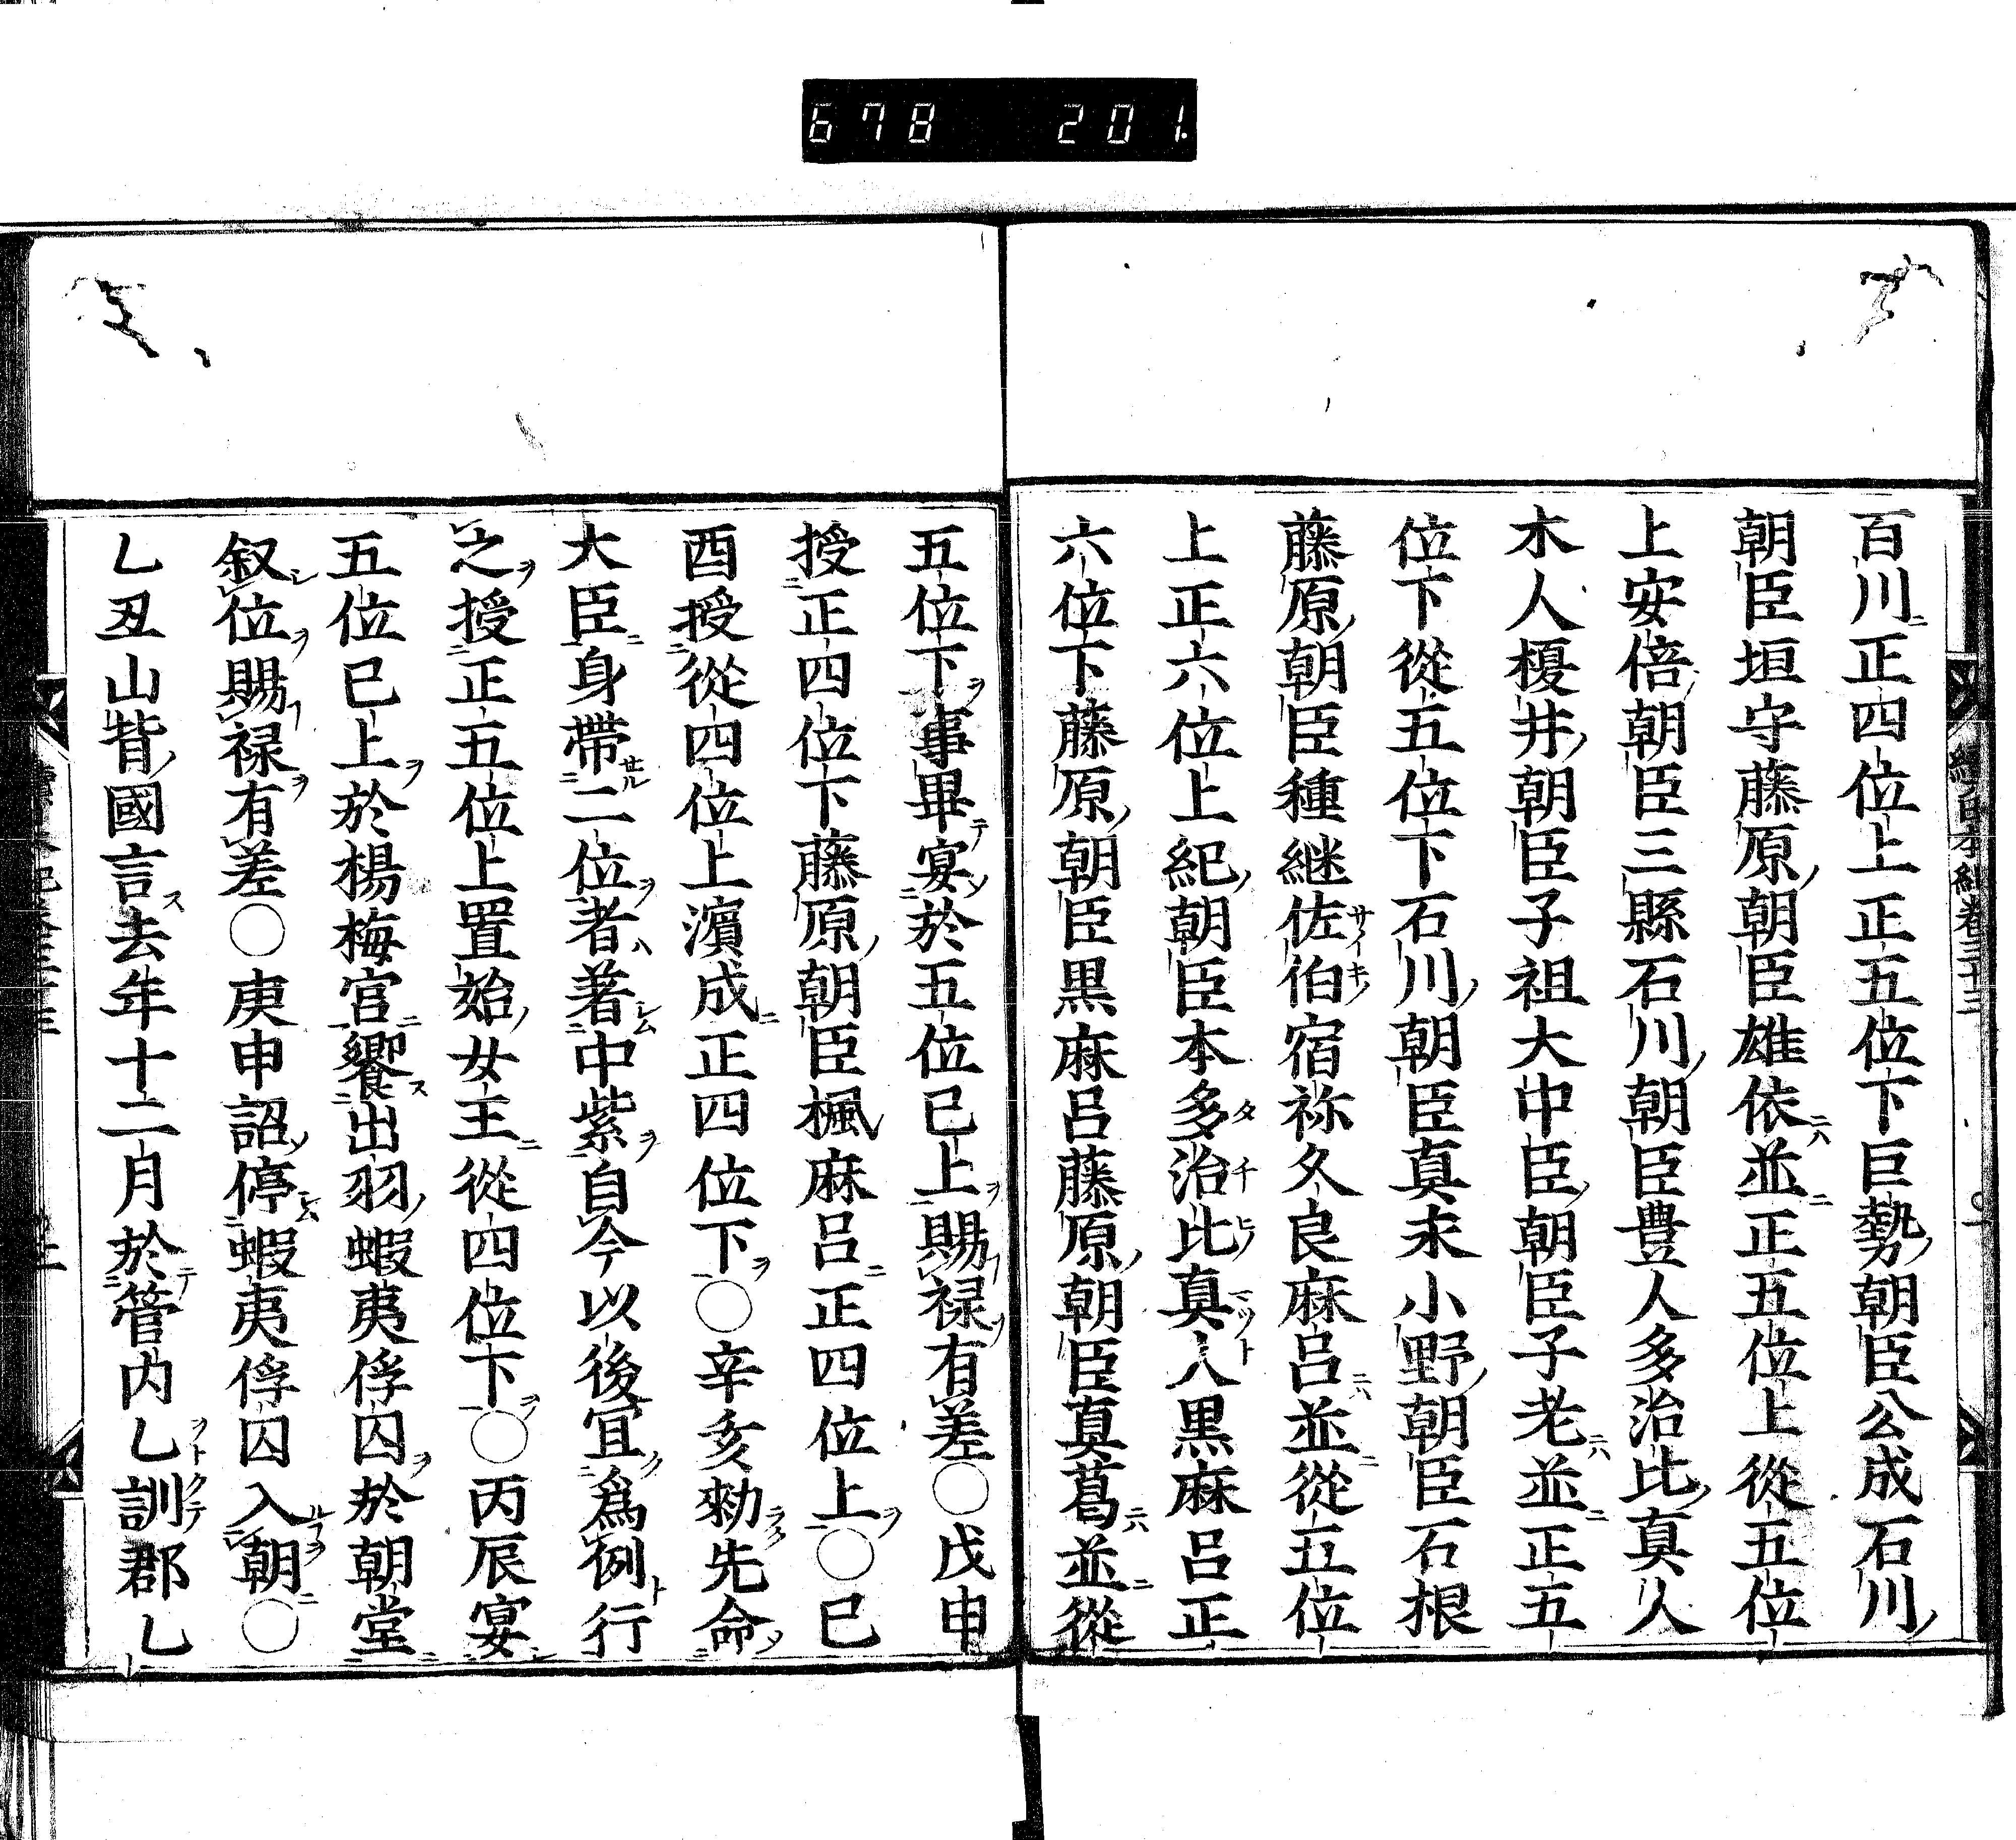 678 201
百川正四位上正五位下巨勢朝臣公成石川
朝臣垣守藤原朝臣雄依並正五位上從五位
上安倍朝臣三縣石川朝臣豊人多治比真人
木人榎井朝臣子祖大中臣朝臣子老並正五
位下從五位下石川朝臣真末小野朝臣石根
藤原朝臣種継佐伯宿祢久良麻呂並從五位
上正六位上紀朝臣本多治比真人黒麻呂正
六位下藤原朝臣黒麻呂藤原朝臣真葛並從
五位下事畢宴於五位已上賜禄有差○戊申
授正四位下藤原朝臣楓麻呂正四位上○已
酉授從四位上濵成正四位下○辛亥勑先命
大臣身帶二位者著中紫自今以後宜爲例行
之授正五位上置始女王從四位下○丙辰宴
五位已上於楊梅宮饗出羽蝦夷俘囚於朝堂
叙位賜禄有差○庚申詔停蝦夷俘囚入朝○
乚丑山背國言去年十二月於管内乚訓郡乚